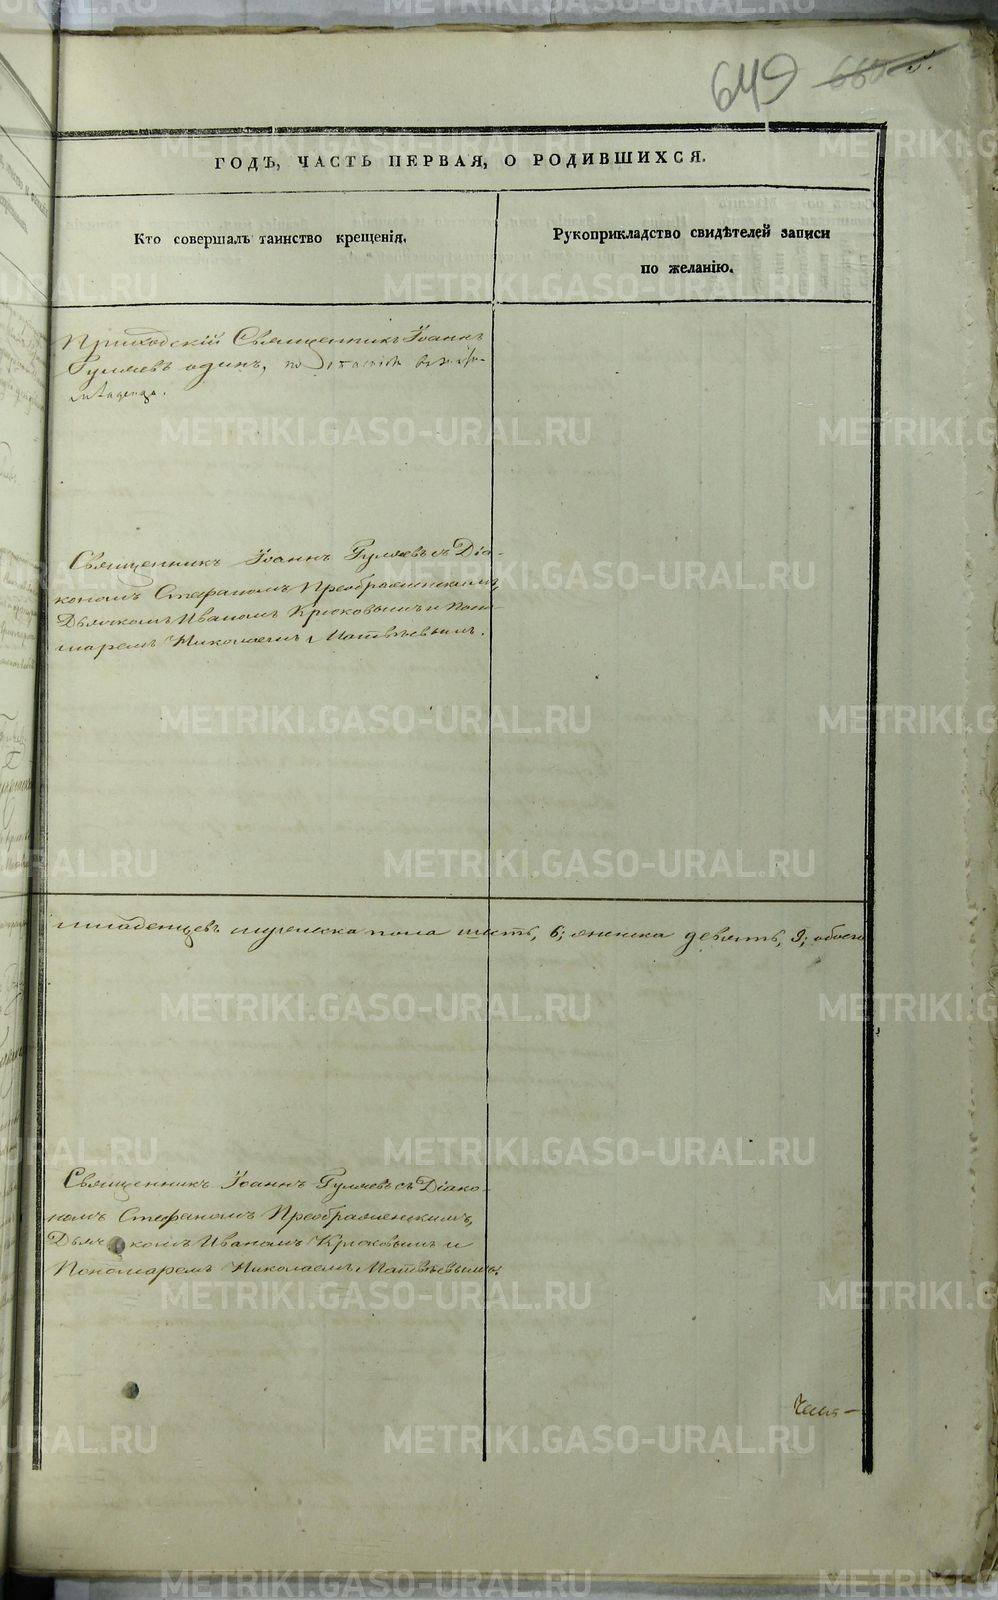 649
ГОДЪ, ЧАСТЬ ПЕРВАЯ, О РОДИВШИХСЯ.
Кто совершалъ таинство крещенія.
Рукоприкладство свидѣтелей записи
по желанію.
Приходскій Священникъ Іоаннъ
Гуляевъ одинъ, по
младенца.
Священникъ Іоаннъ Гуляевъ съ Діа-
кономъ Стефаномъ Преображенскимъ,
Дьячкомъ Иваномъ Крюковымъ и Поно-
маремъ Николаемъ Матвѣевымъ.
младенцевъ мужеска пола шесть, 6; женска девять, 9; обоего
Священникъ Іоаннъ Гуляевъ съ Діако-
номъ Стефаномъ Преображенскимъ,
Дьячкомъ Иваномъ Крюковымъ и
Пономаремъ Николаемъ Матвѣевымъ.
METRIKI.GASO-URAL.RU